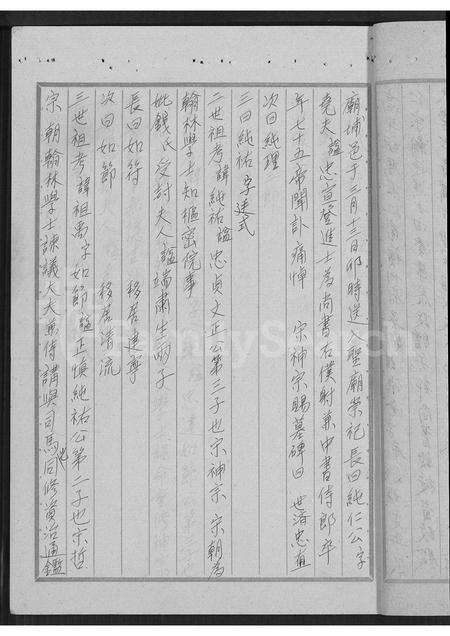 廟埔邑于三月十三日卯時送入聖廟崇祀長曰純仁公字
堯夫諡忠宣登進士為尚書右僕射兼中書侍郎卒
年七十五帝聞訃痛悼 宗神宗賜墓碑曰 世濟忠直
次曰純理
三曰純祐字達式
二世祖考諱純祐諡忠貞文正公第三子也宗神宗 宗朝為
翰林學士知樞密院事
妣錢氏受封夫人諡端肅生明子
長曰如符 移居建寧
次曰如節 移居清流
三世祖考諱祖禹字如節諡正慎純祐公第二子也宗哲
宗朝翰林學士諫議大夫兼侍講與司馬同修資治通鑑
FamilySearch